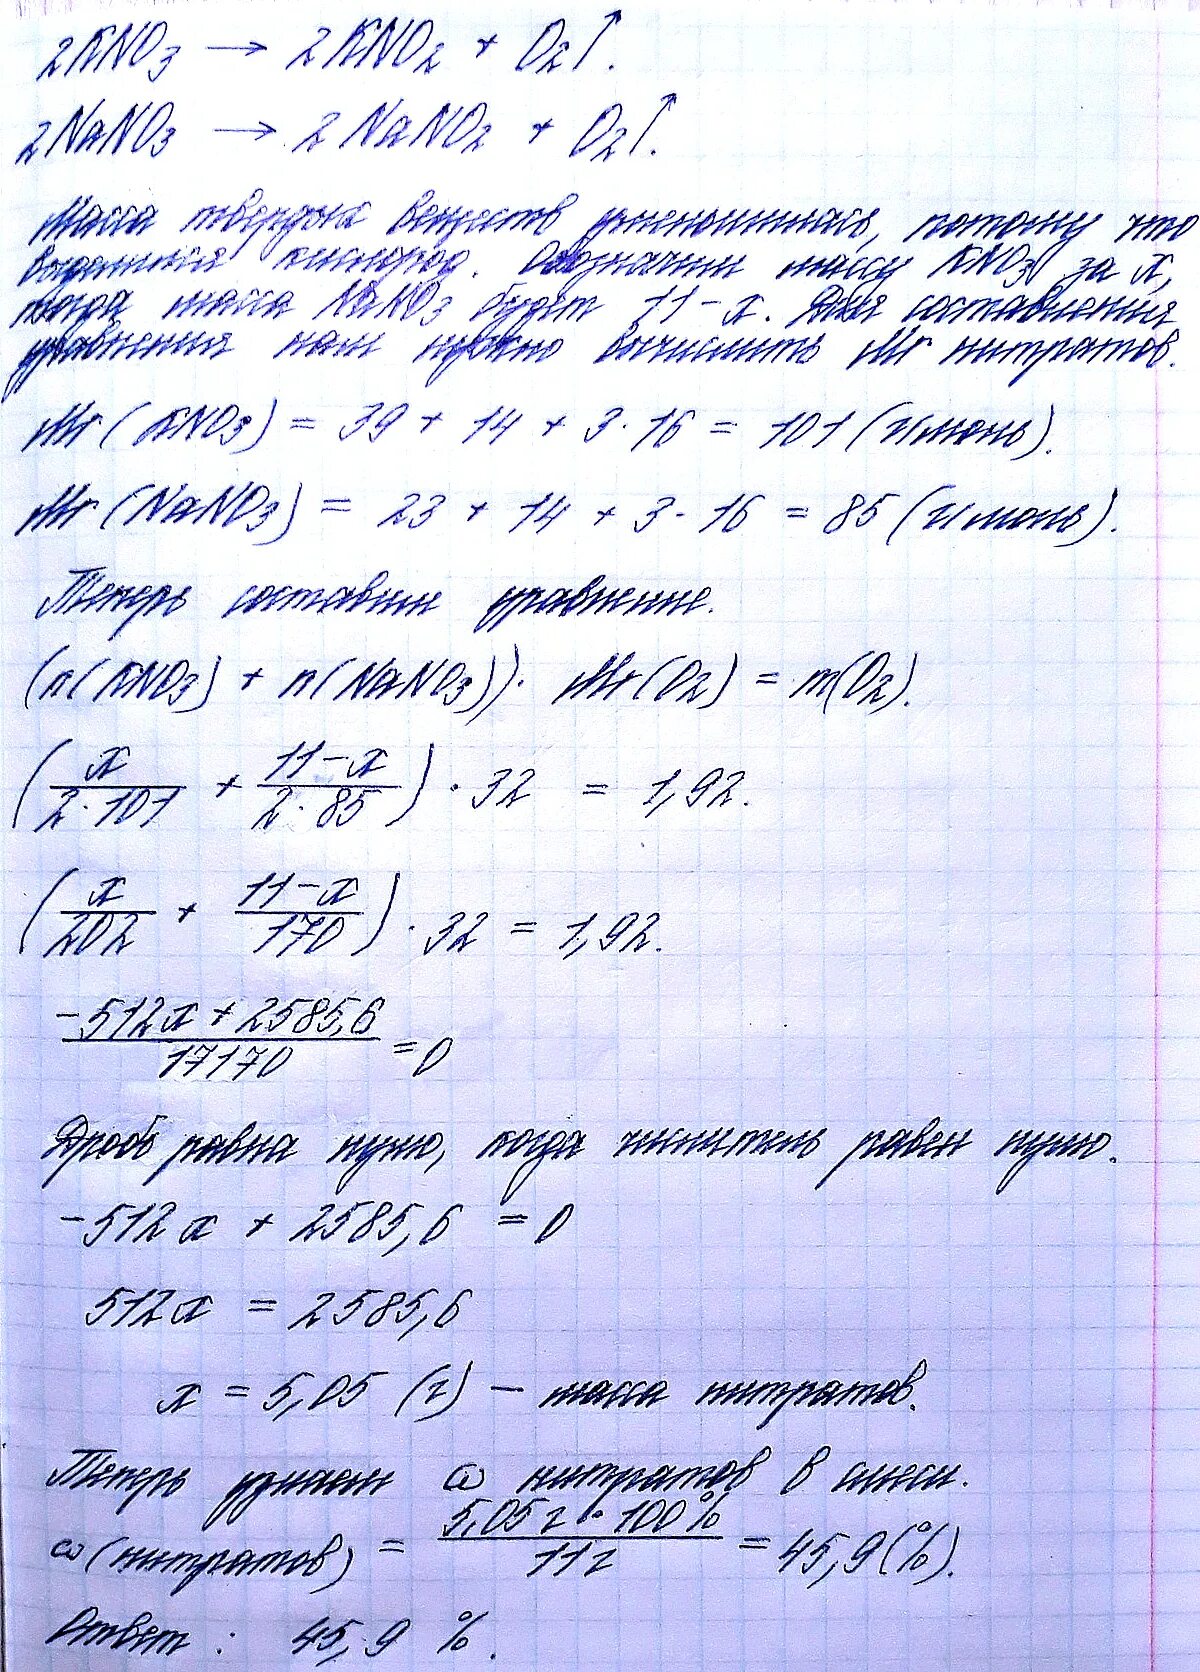 2KNO₃ → 2KNO₂ + O₂↑.
2NaNO₃ → 2NaNO₂ + O₂↑.
Масса твердых веществ уменьшилась, потому что
выделился кислород. Обозначим массу KNO₃ за x,
тогда масса NaNO₃ будет 11-x. Для составления
уравнения нам нужно вычислить Mr нитратов.
Mr(KNO₃) = 39 + 14 + 3·16 = 101 (г/моль).
Mr(NaNO₃) = 23 + 14 + 3·16 = 85 (г/моль).
Теперь составим уравнение.
(n(KNO₃) + n(NaNO₃))· Mr(O₂) = m(O₂).
(x/(2·101) + (11-x)/(2·85)) · 32 = 1,92.
(x/202 + (11-x)/170) · 32 = 1,92.
(-512x + 2585,6)/17170 = 0
Дробь равна нулю, когда числитель равен нулю.
-512x + 2585,6 = 0
512x = 2585,6
x = 5,05 (г) – масса нитратов.
Теперь узнаем ω нитратов в смеси.
ω(нитратов) = (5,05 г · 100%)/11г = 45,9(%).
Ответ: 45,9 %.